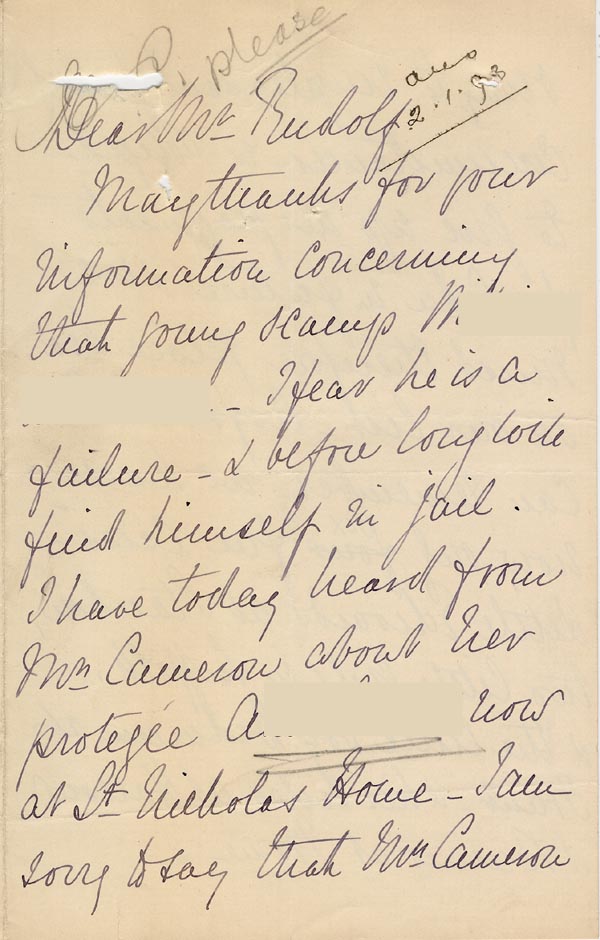 please
ans
2.1.93
Dear Mr Rudolf
Many thanks for your
information concerning
that young scamp W.
- I fear he is a
failure - & before long will
find himself in jail.
I have today heard from
Mrs Cameron about her
protegée A
now
at St Nicholas Home - I am
sorry to say that Mrs Cameron